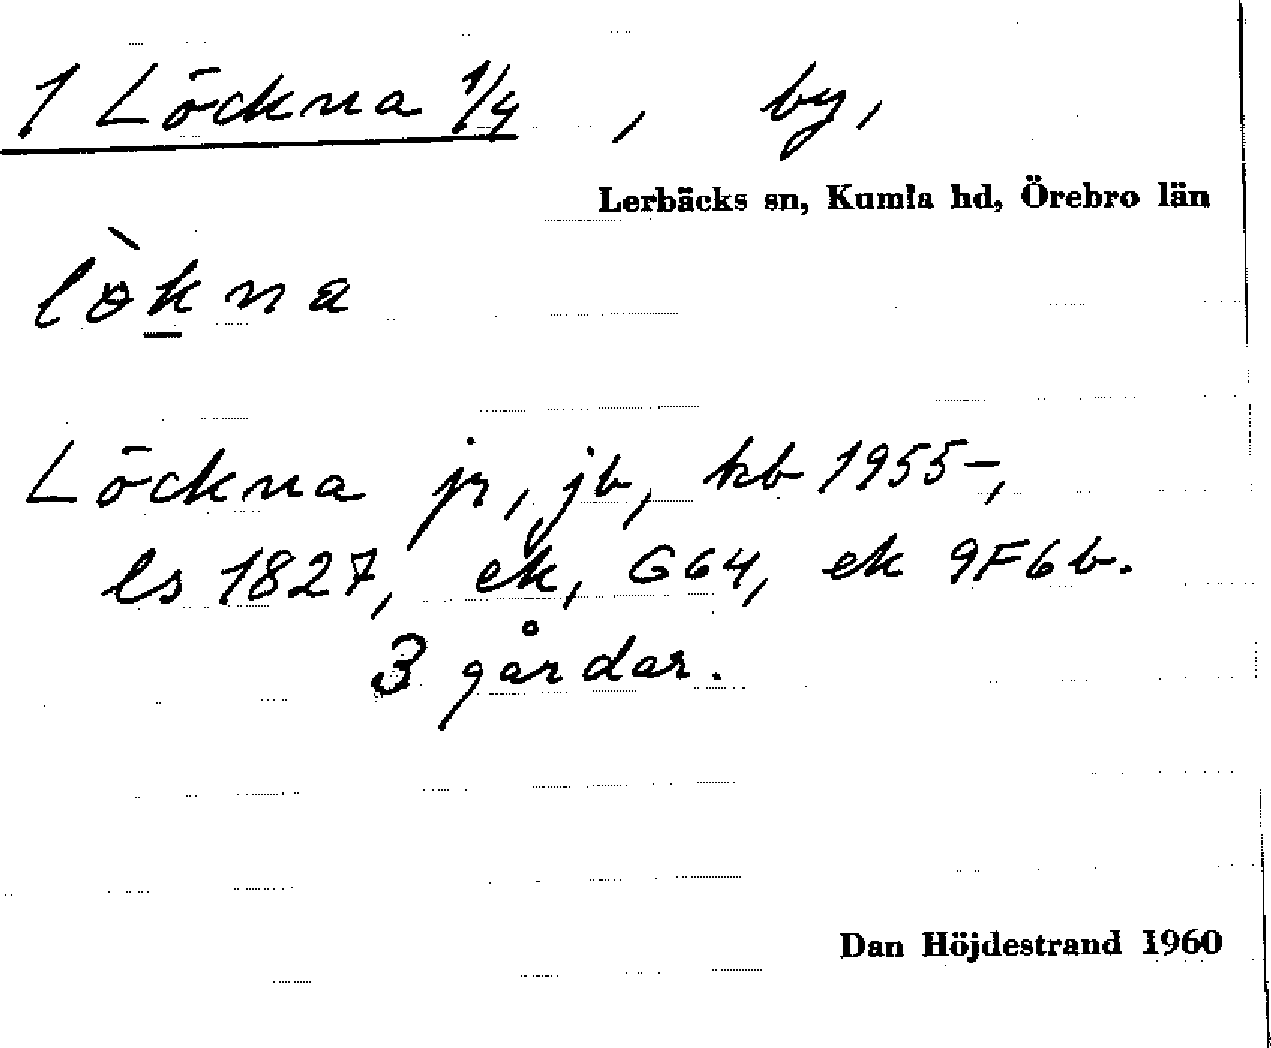 1 Löckna 1/4 , by,
Lerbäcks sn, Kumla hd, Örebro län
lɵ̀kna
Löckna jr, jb, kb 1955–,
ls 1827, ek, G64, ek 9F6b.
3 gårdar.
Dan Höjdestrand 1960